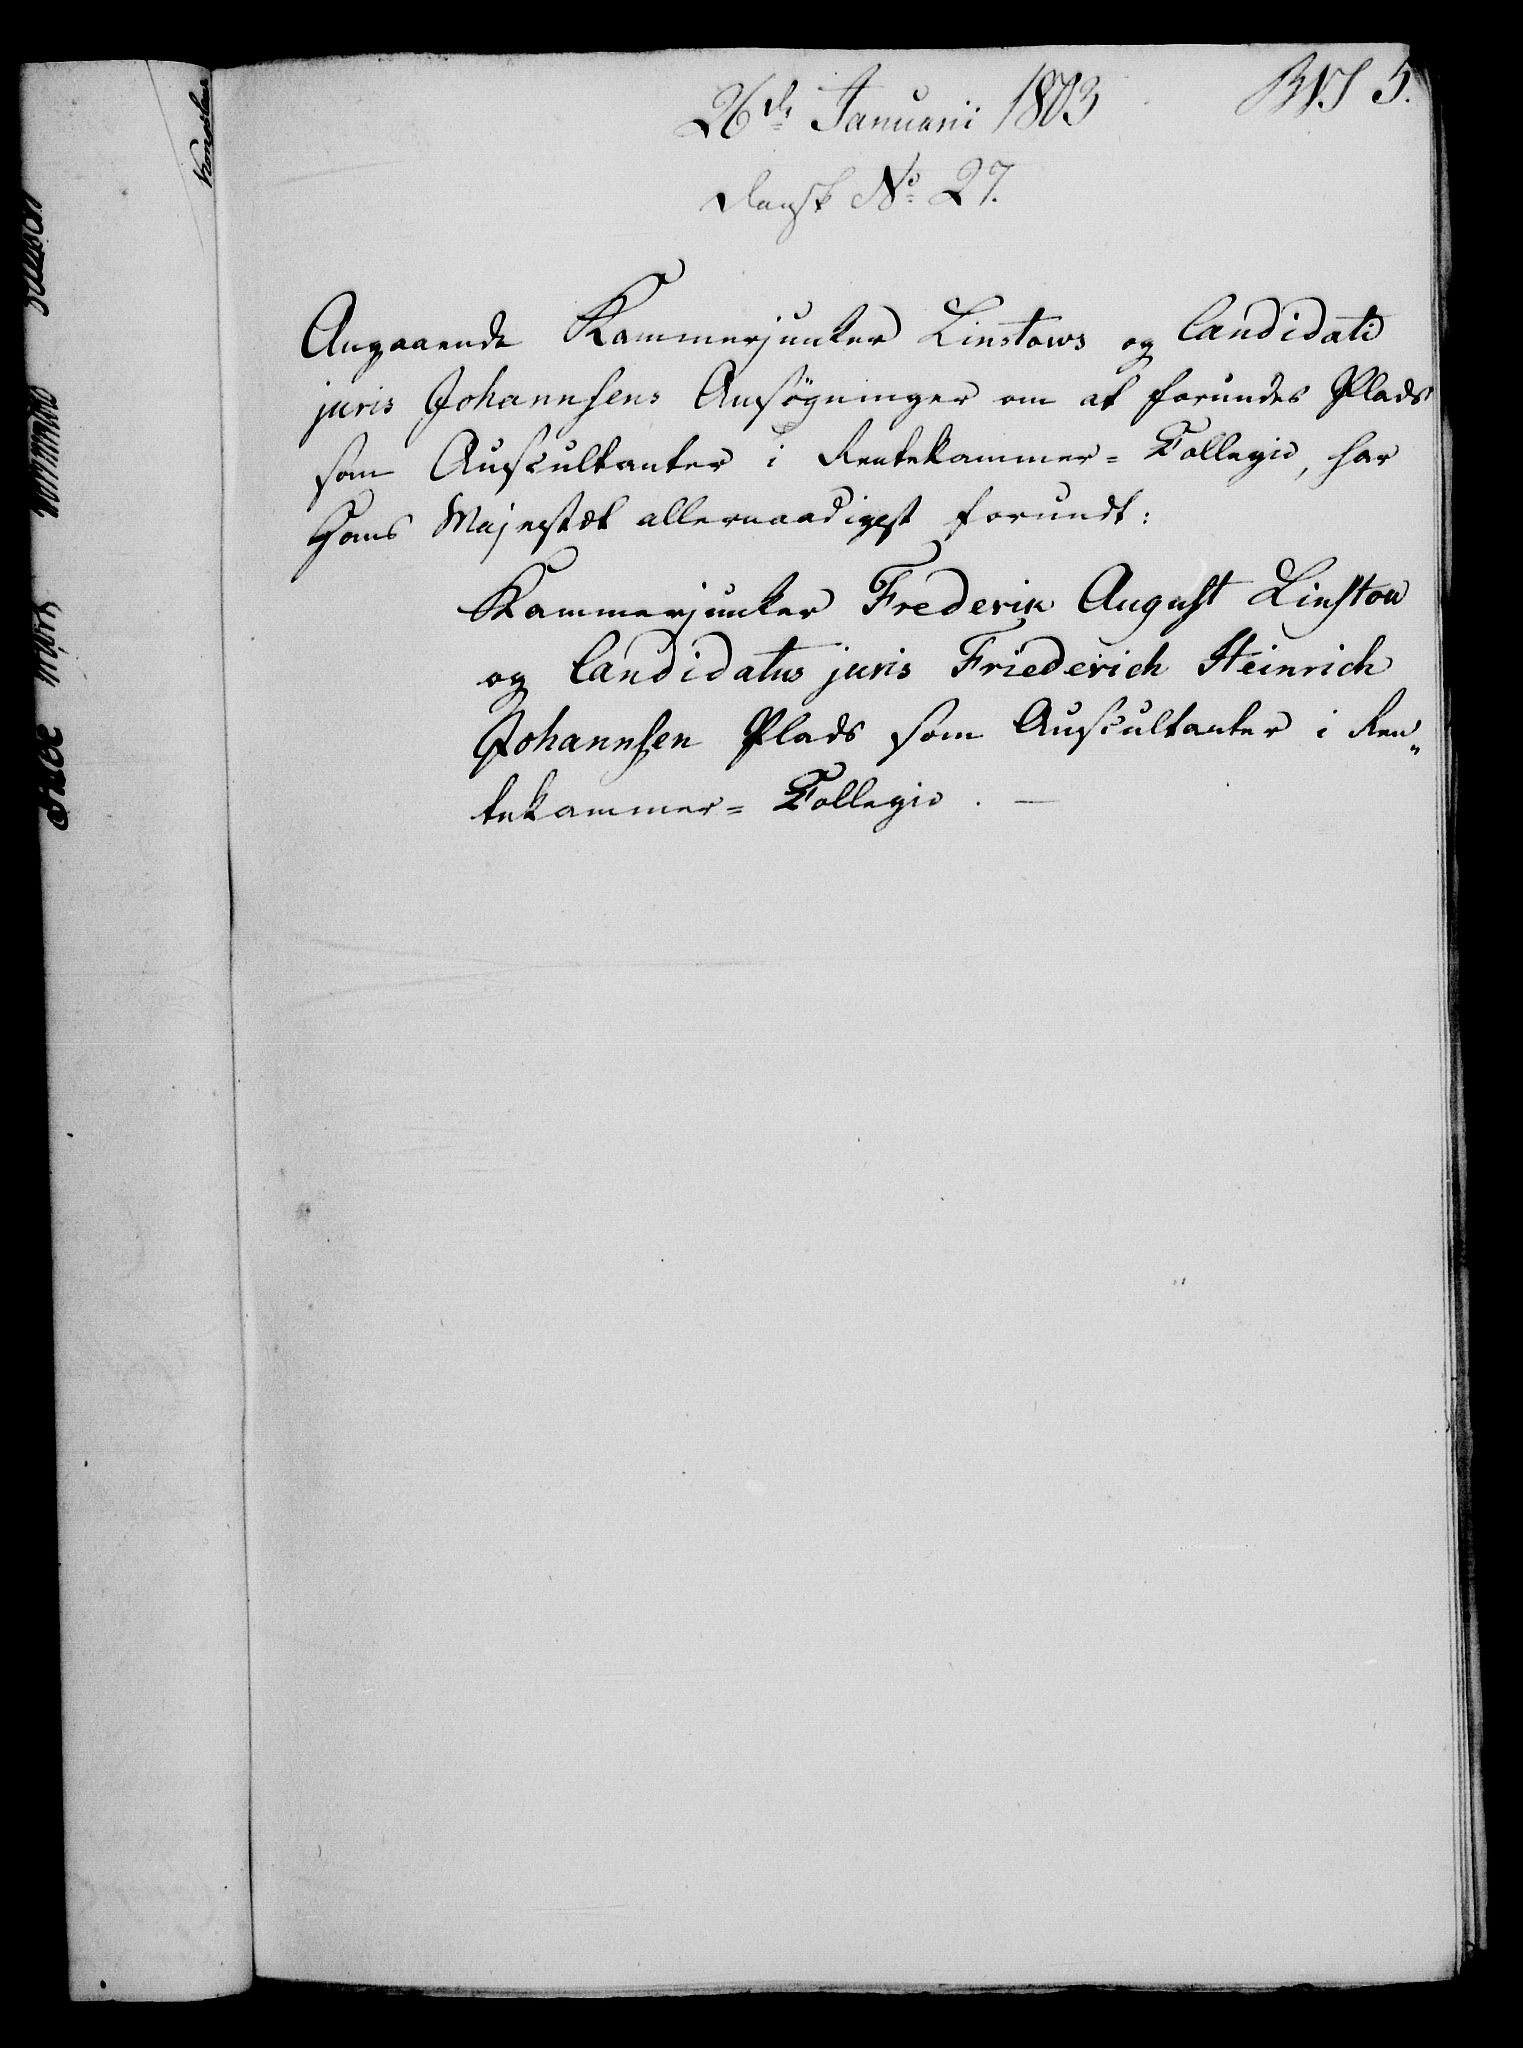 26de Januarii 1803
Dansk No. 27.
Angaaende Kammerjunker Linstows og Candidati
juris Johannsens Ansøgninger om at forundes Plads
som Auscultanter i Rentekammer= Collegio, har
Hans Majestæt allernaadigst forundt:
Kammerjunker Frederik August Linstow
og Candidatus juris Friederich Heinrich
Johannsen Plads som Auscultanter i Ren„
tekammer= Collegio. —